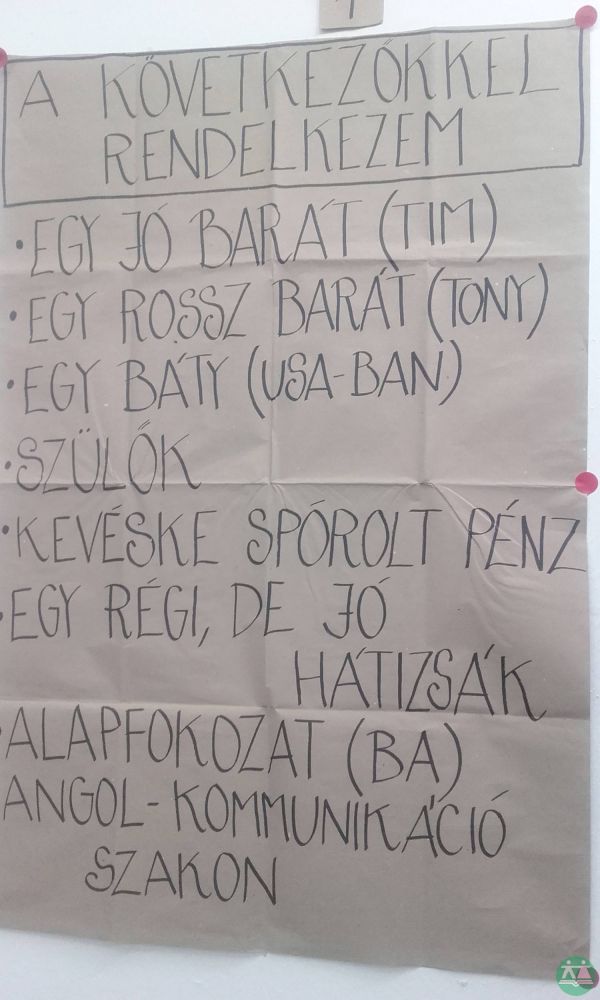 A KÖVETKEZŐKKEL
RENDELKEZEM
• EGY JÓ BARÁT (TIM)
• EGY ROSSZ BARÁT (TONY)
• EGY BÁTY (USA-BAN)
• SZÜLŐK
• KEVÉSKE SPÓROLT PÉNZ
• EGY RÉGI, DE JÓ
HÁTIZSÁK
• ALAPFOKOZAT (BA)
ANGOL-KOMMUNIKÁCIÓ
SZAKON